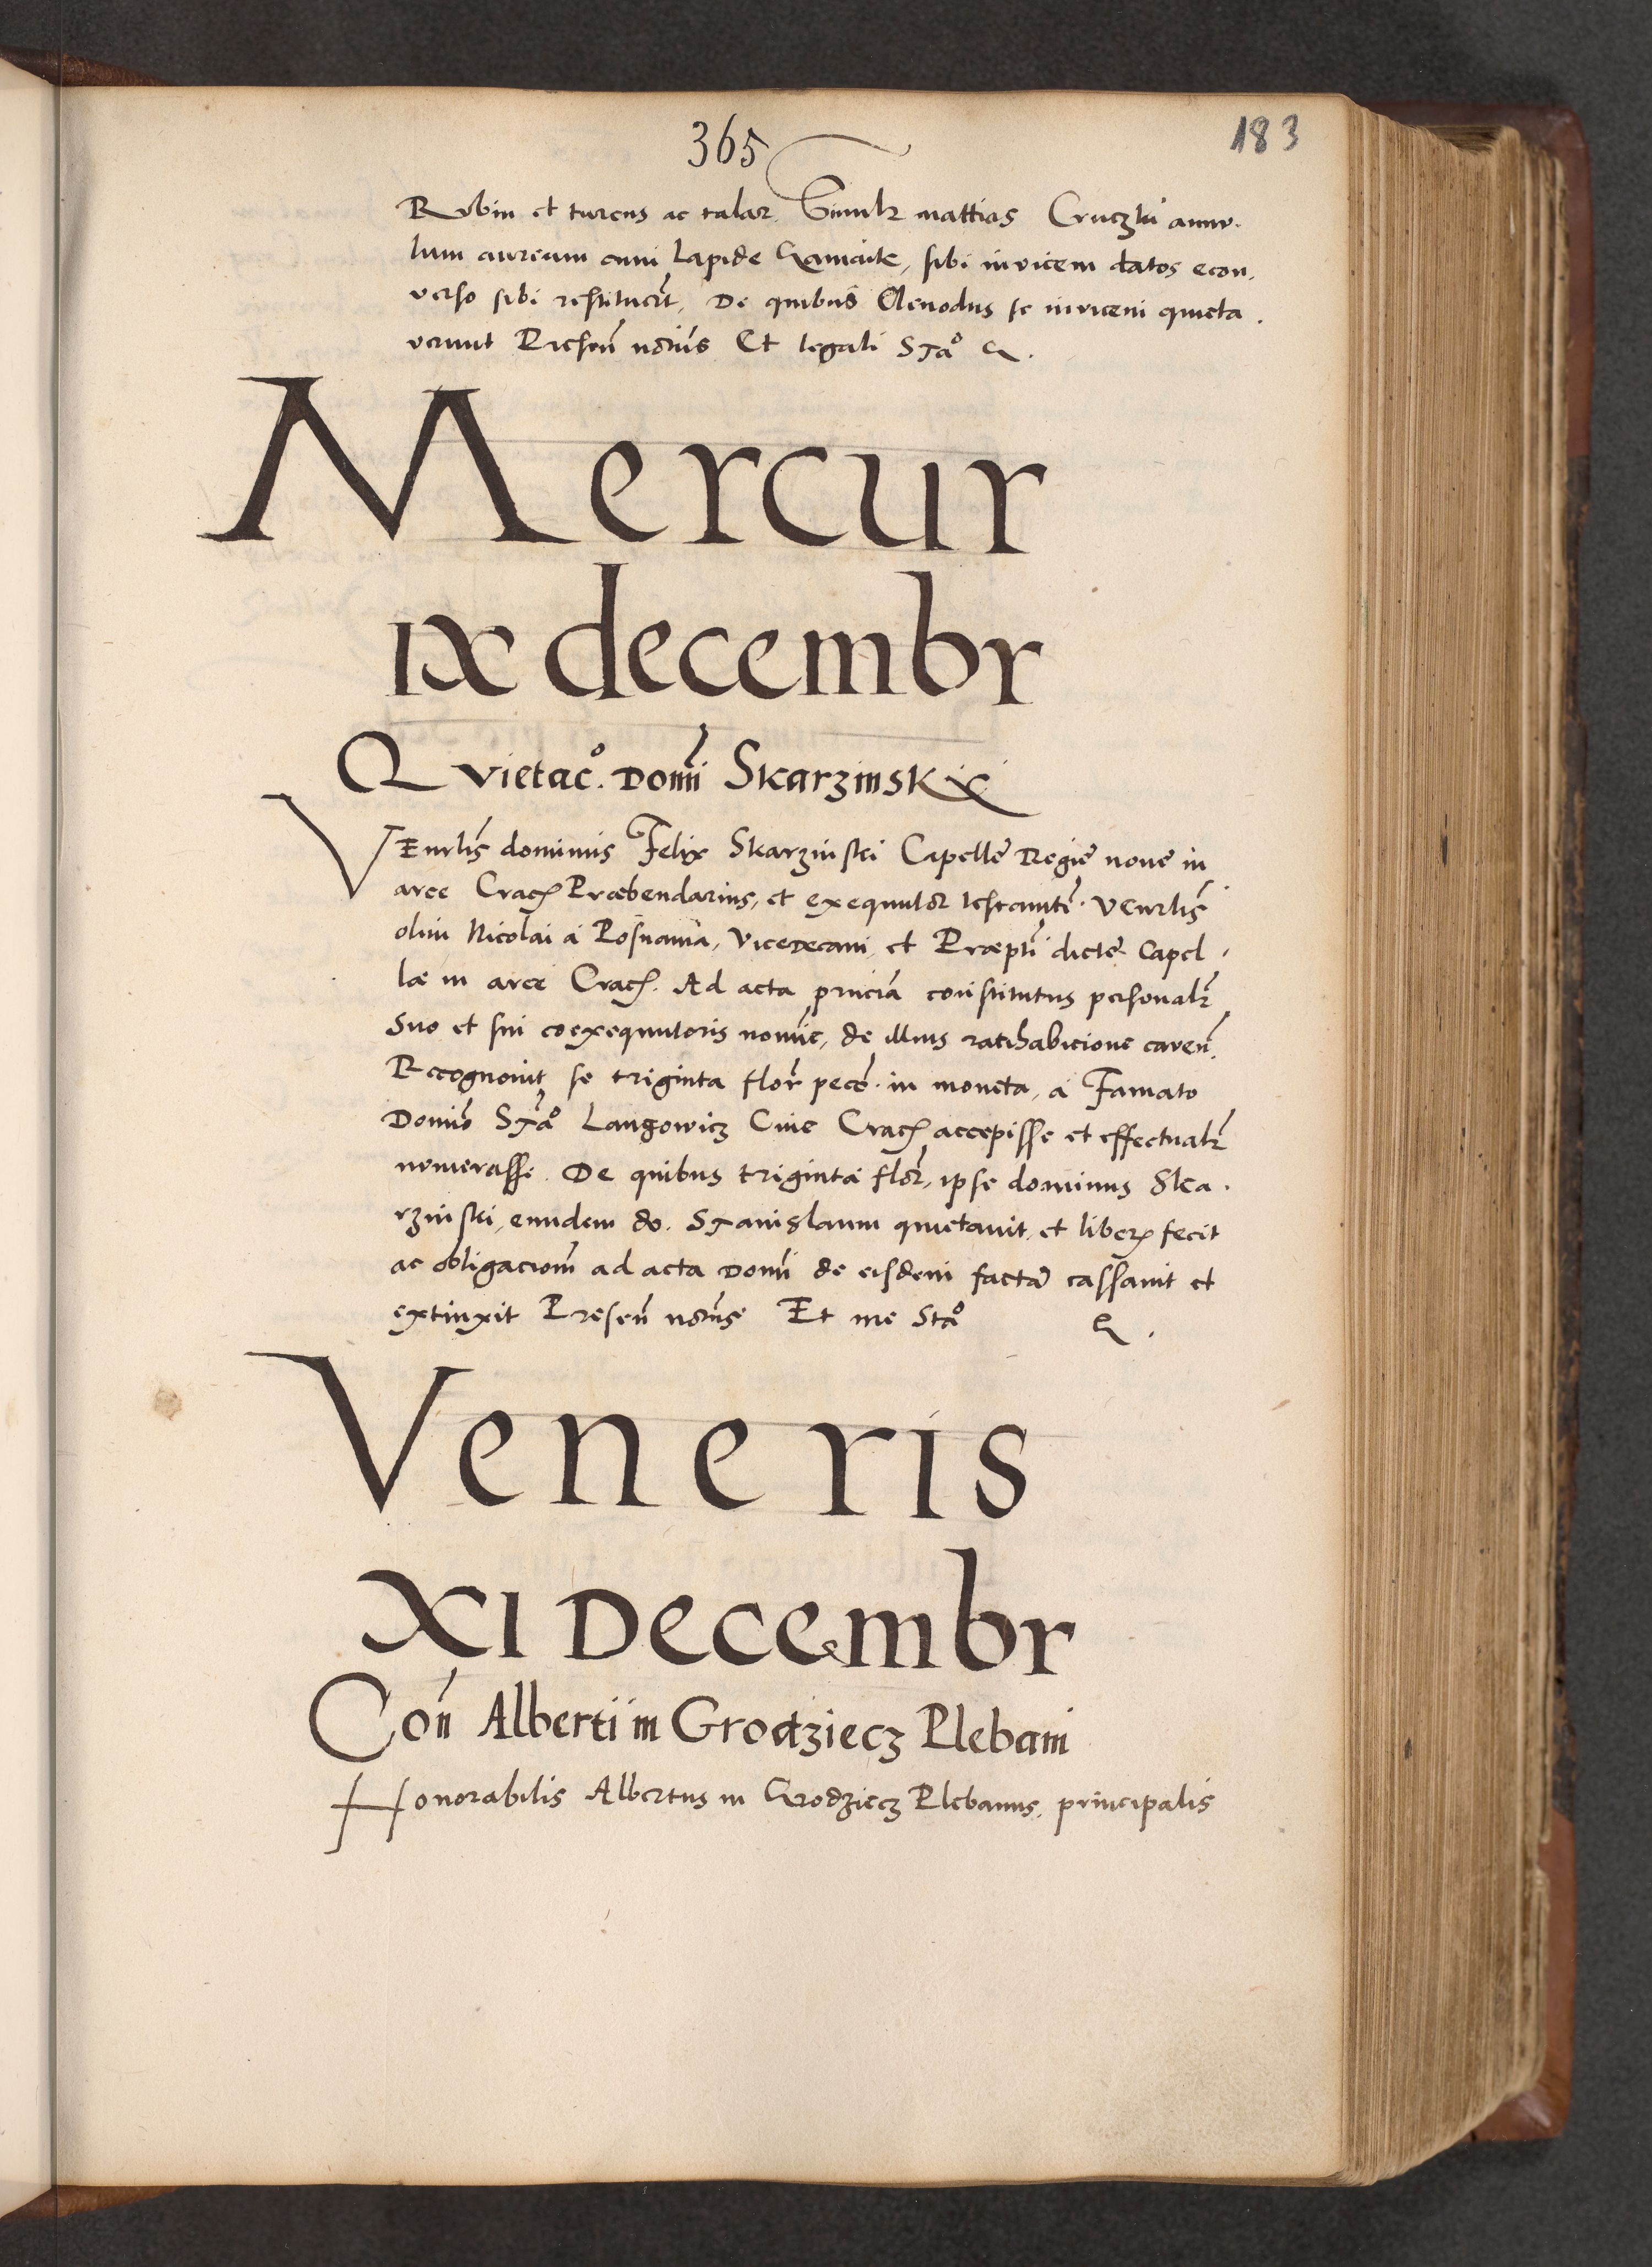 365
183
Rubin et turcus ac talar. Simılr mattias Cruczki annu.
lum aureum cum lapide Gamaite, sibi invicem datos econ.
verso sibi restituert, De quibus Clenodus se invicem quieta.
verunt Presen notus Et legali Sta°
Mercur
ıx decembr
Quietac°. Domi Skarzinski
Venrlis dominus Felix Skarzinski Capelle Regie noue in
arce Crac Præbendarius, et exequutor testamti. Venrlis
olim Nicolai a Posnania, Vicedecani, et Præpti dicte Capel.
læ in arce Crac. Ad acta prncia constitutus personalr
Suo et sui coexequutoris nomie, de illius ratihabicione caven.
Recognouit se triginta flor pecc. in moneta, a Famato
Domio Sta° Langowicz Ciue Crac accepisse et effectualr
numerasse. De quibus triginta flor, ipse dominus Ska.
rzinski, eundem do. Stanislaum quietauit, et liber fecit
ac obligaciom ad acta Domi de eisdem facta cassauit et
extinxit Presen notus Et me Sta°
Veneris
XI Decembr
Con Alberti in Grodziecz Plebani
Honorabilis Albertus in Grodziecz Plebanus, principalis